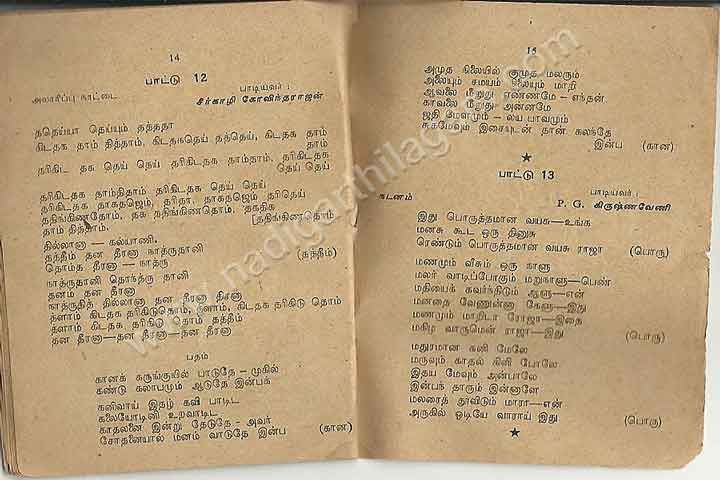 14
பாட்டு 12
பாடியவர் :
அலாரிப்பு நாட்டை
சீர்காழி கோவிந்தராஜன்
ததெய்யா தெய்யும் தத்ததா
கிடதக தாம் தித்தாம், கிடதகதெய் தத்தெய், கிடதக தாம்
தாம்
தரிகிட தக தெய் தெய் தரிகிடதக தாம்தாம், தரிகிடதக
தெய் தெய்
தரிகிடதக தாம்திதாம் தரிகிடதக தெய் தெய்
தரிகிடதக தாகதஜெம், தரிதா, தாகதஜெம் தரிதெய்
ததிங்கிணதோம், தக ததிங்கிணதோம், ததகதிக
[ததிங்கிணதோம்
தாம் தித்தாம்.
தில்லானா – கல்யாணி.
தத்தீம் தன தீரனா நாத்ருதானி
தொம்க தீரனா – நாத்ரு (தந்தீம்)
நாத்ருதானி தொந்த்ரு தானி
தனம் தன தீரனா
நாத்ருதித் தில்லானா தன தீரனா தீரனா
த்ளாம் கிடதக தரிகிடுதொம், த்ளாம், கிடதக தரிகிடு தொம்
த்ளாம் கிடதக தரிகிடு தொம் தத்தீம்
தன தீரனா—தன தீரனா—தன தீரனா
பதம்
கானக் கருங்குயில் பாடுதே – முகில்
கண்டு கலாபமும் ஆடுதே இன்பக்
கனிவாய் இதழ் கவி பாடிட
கலையோடினி உறவாடிட
காதலனை இன்று தேடுதே – அவர்
சோதனையால் மனம் வாடுதே இன்ப (கான)
15
அமுத நிலையில் குமுத மலரும்
அலையும் சமயம் நிலையும் மாறி
ஆவலை மீறுது எண்ணமே – எந்தன்
காவலை மீறுது அன்னமே
ஜதி மேளமும் – லய பாவமும்
சுகமேவும் இசையுடன் தான் கலந்தே
இன்ப (கான)
பாட்டு 13
பாடியவர் :
நடனம்
P. G. கிருஷ்ணவேணி
இது பொருத்தமான வயசு—உங்க
மனசு கூட ஒரு தினுசு
ரெண்டும் பொருத்தமான வயசு ராஜா (பொரு)
மணமும் வீசும் ஒரு நாளு
மலர் வாடிப்போகும் மறுநாளு—பெண்
மதியைக் கவர்ந்திடும் ஆளு—என்
மனதை வேணுன்னா கேளு—இது
மணமும் மாறிடா ரோஜா—இதை
மகிழ வாருமென் ராஜா—இது (பொரு)
மதுரமான கனி மேலே
மருவும் காதல் கிளி போலே
இதய மேவும் அன்பாலே
இன்பந் தாரும் இன்னாளே
மலரைத் தூவிடும் மாரா—என்
அருகில் ஓடியே வாராய் இது (பொரு)